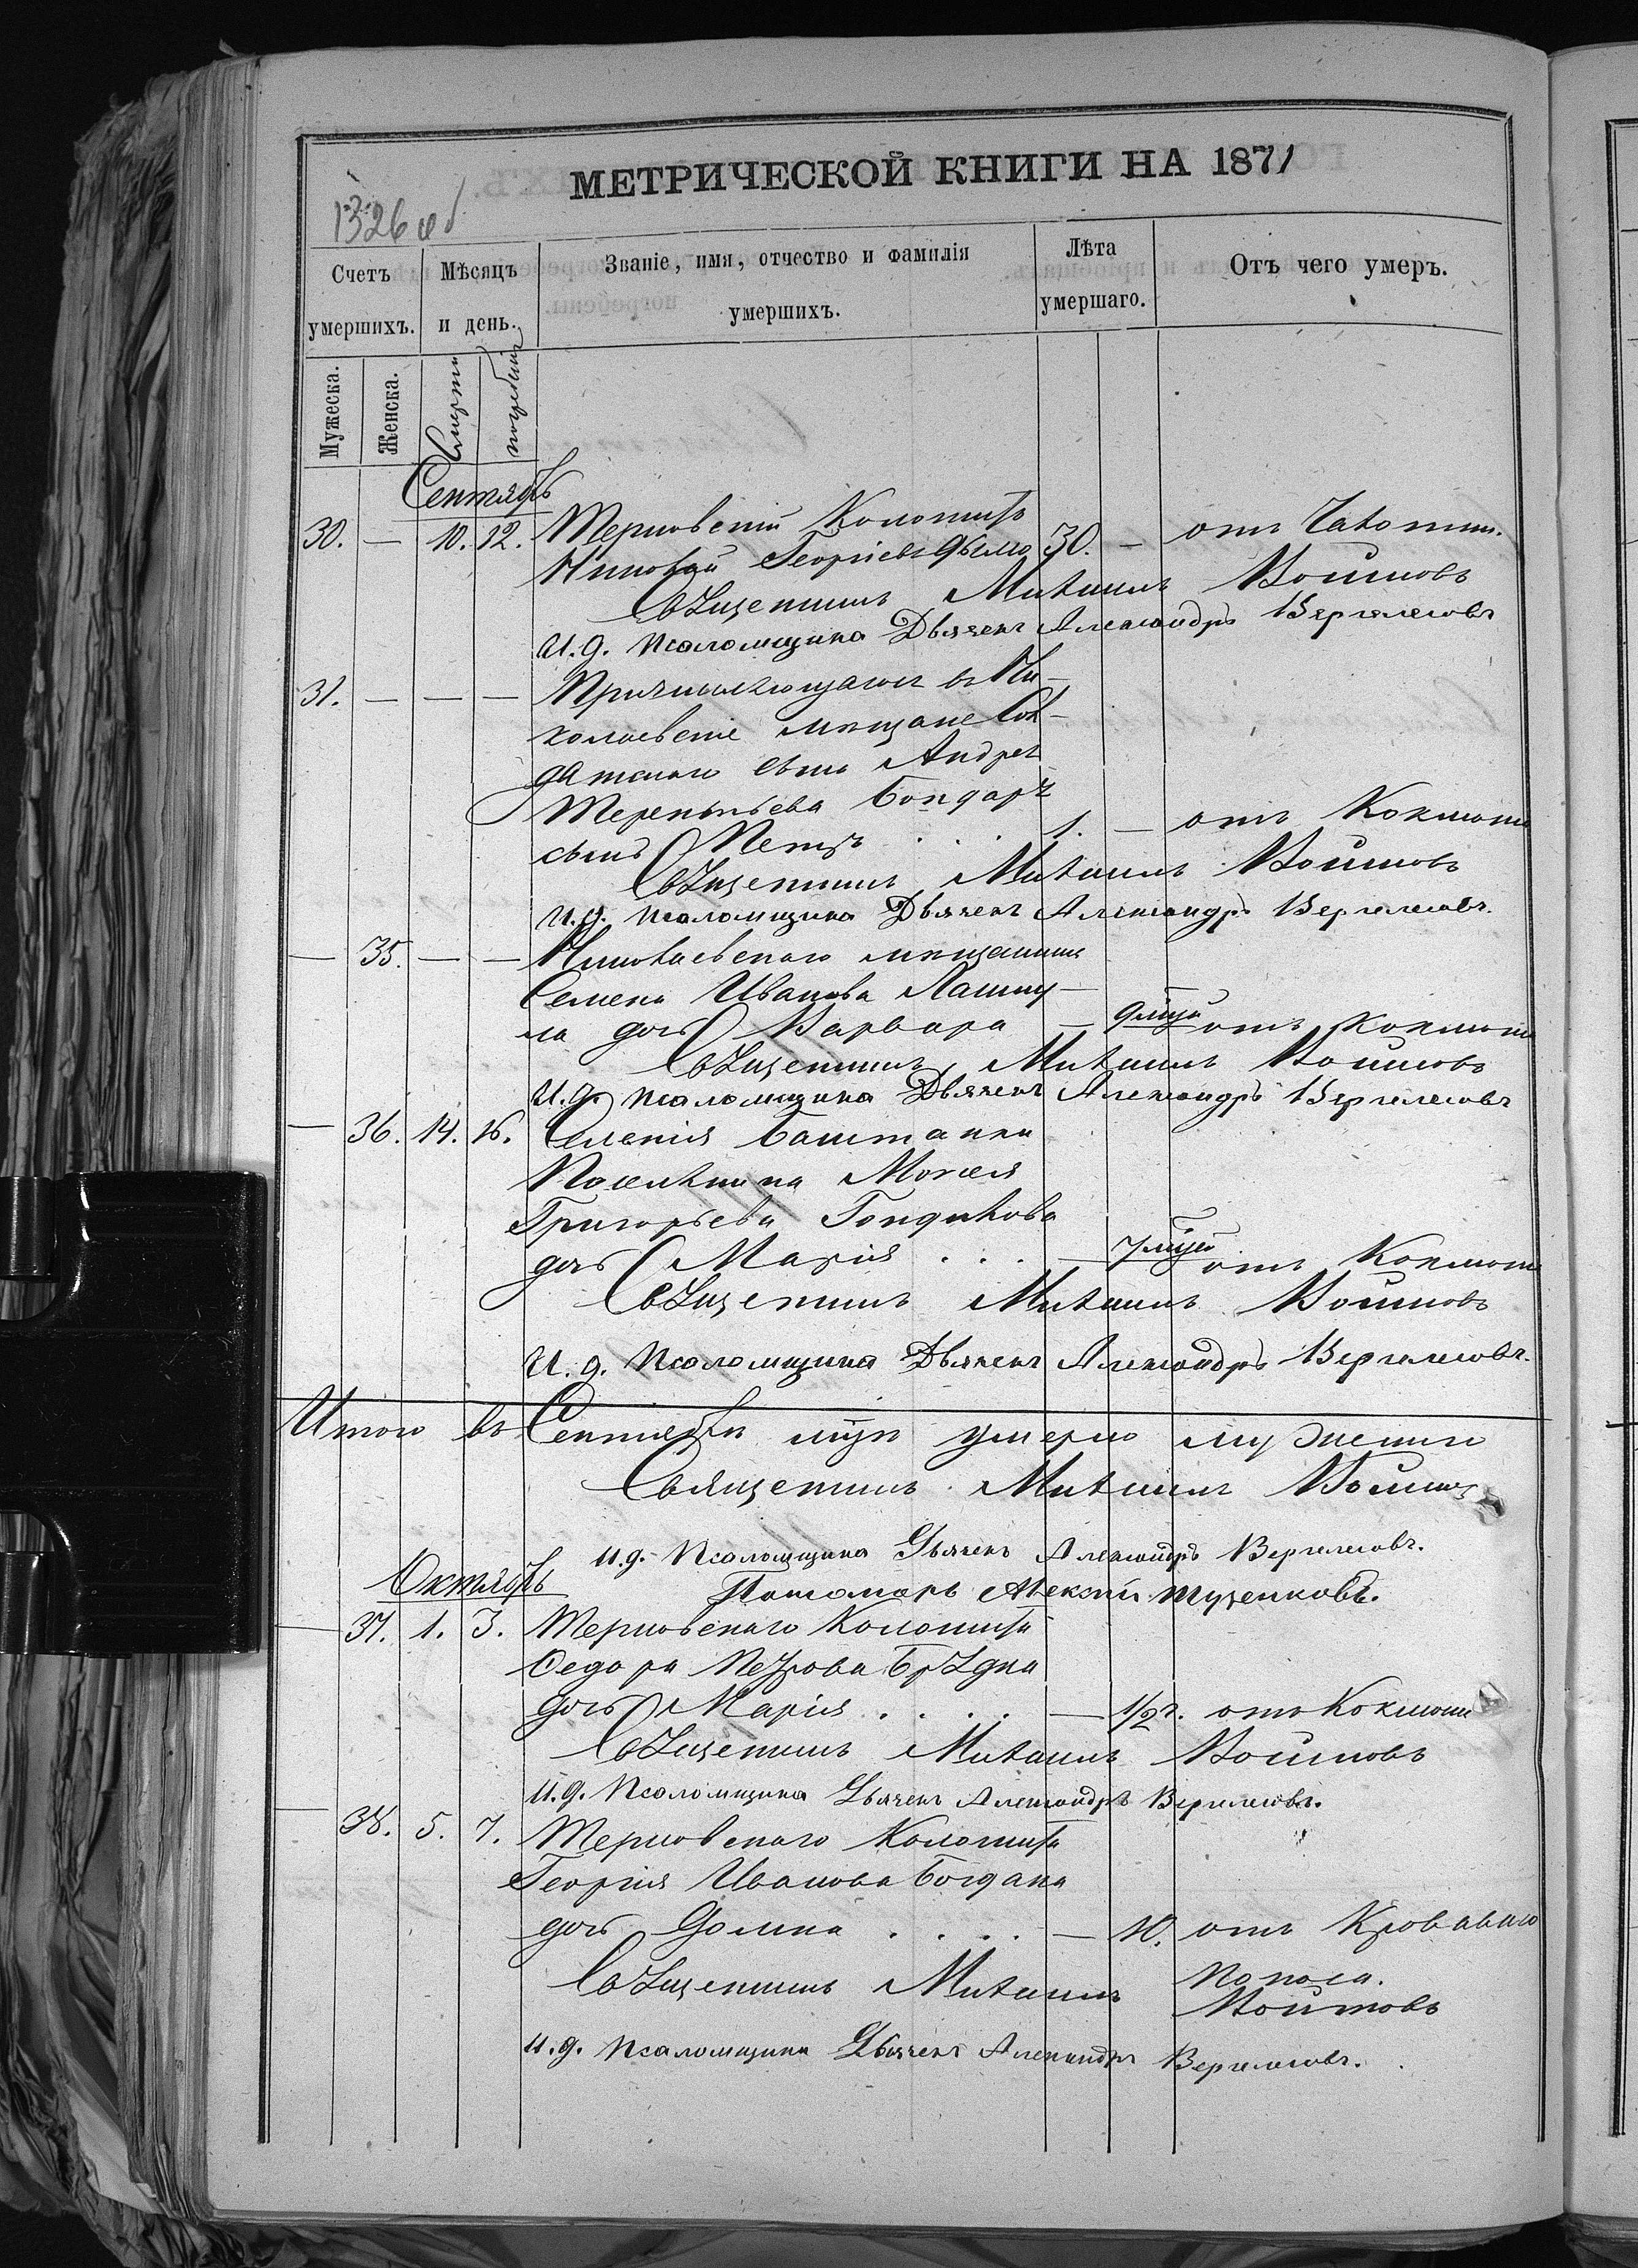 МЕТРИЧЕСКОЙ КНИГИ НА 1871
1326 об
Счетъ умершихъ.
Мѣсяцъ и день.
Званіе, имя, отчество и фамилія умершихъ.
Лѣта умершаго.
Отъ чего умеръ.
Мужеска.
Женска.
Смерти
погребенія
Сентябрь
30. — 10. 12. Терновскій Колонистъ 30. — отъ Чахотки.
Николай Георгіевъ
Священникъ Михаилъ Войновъ
И. д. Псаломщика Дьячекъ Александръ Вергелесовъ
31. — — — Причисляющагося въ Ни-
колаевскіе мѣщане Сол-
датскаго сына Андрея
Терентьева Бондаря
сынъ Петръ . . . 1. — отъ Коклюша
Священникъ Михаилъ Войновъ
И. д. Псаломщика Дьячекъ Александръ Вергелесовъ.
— 35. — — Николаевскаго мѣщанина
Семена Иванова
дочь Варвара — 9 мцъ отъ Коклюша
Священникъ Михаилъ Войновъ
И. д. Псаломщика Дьячекъ Александръ Вергелесовъ
— 36. 14. 16. Селенія Баштанки
Поселянина Моисея
Григорьева Гондикова
дочь Марія . . . — 7 мцъ отъ Коклюша
Священникъ Михаилъ Войновъ
И. д. Псаломщика Дьячекъ Александръ Вергелесовъ.
Итого въ Сентябрѣ мцѣ умерло
Священникъ Михаилъ Войновъ
И. д. Псаломщика Дьячекъ Александръ Вергелесовъ.
Октябрь
Пономарь Алексѣй Туренковъ.
— 37. 1. 3. Терновскаго Колониста
Ѳедора Петрова
дочь Марія . . . . — 1/2 г. отъ Коклюша
Священникъ Михаилъ Войновъ
И. д. Псаломщика Дьячекъ Александръ Вергелесовъ.
— 38. 5. 7. Терновскаго Колониста
Георгія Иванова Богдана
дочь Домна . . . . — 10. отъ Кроваваго
поноса.
Священникъ Михаилъ Войновъ
И. д. Псаломщика Дьячекъ Александръ Вергелесовъ.